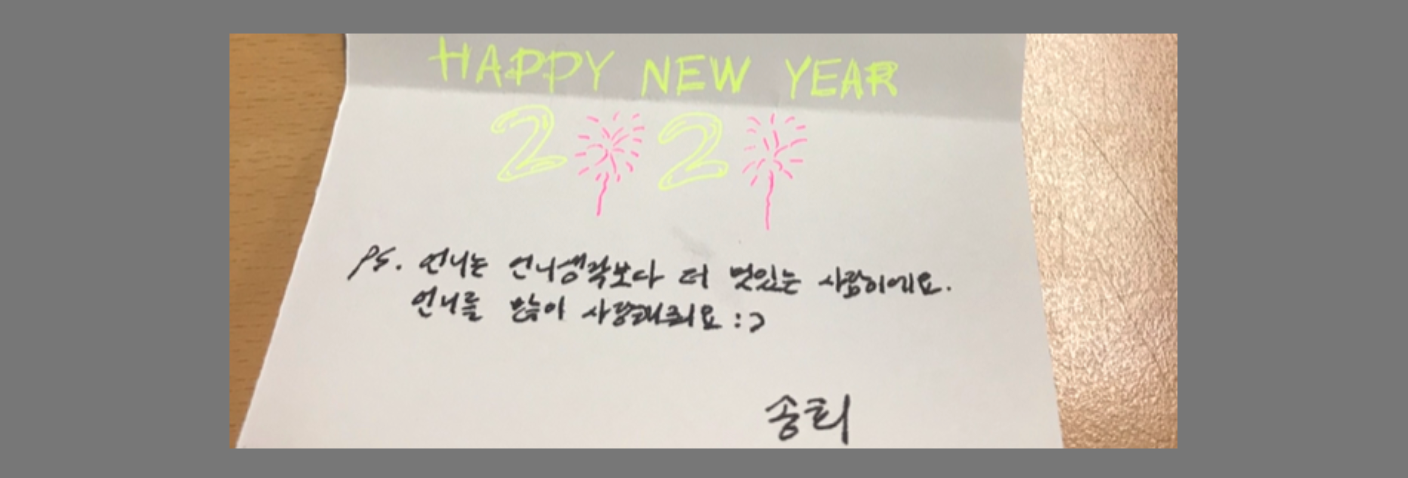 HAPPY NEW YEAR
2020
PS. 언니는 언니생각보다 더 멋있는 사람이에요.
언니를 많이 사랑해줘요 :)
송희